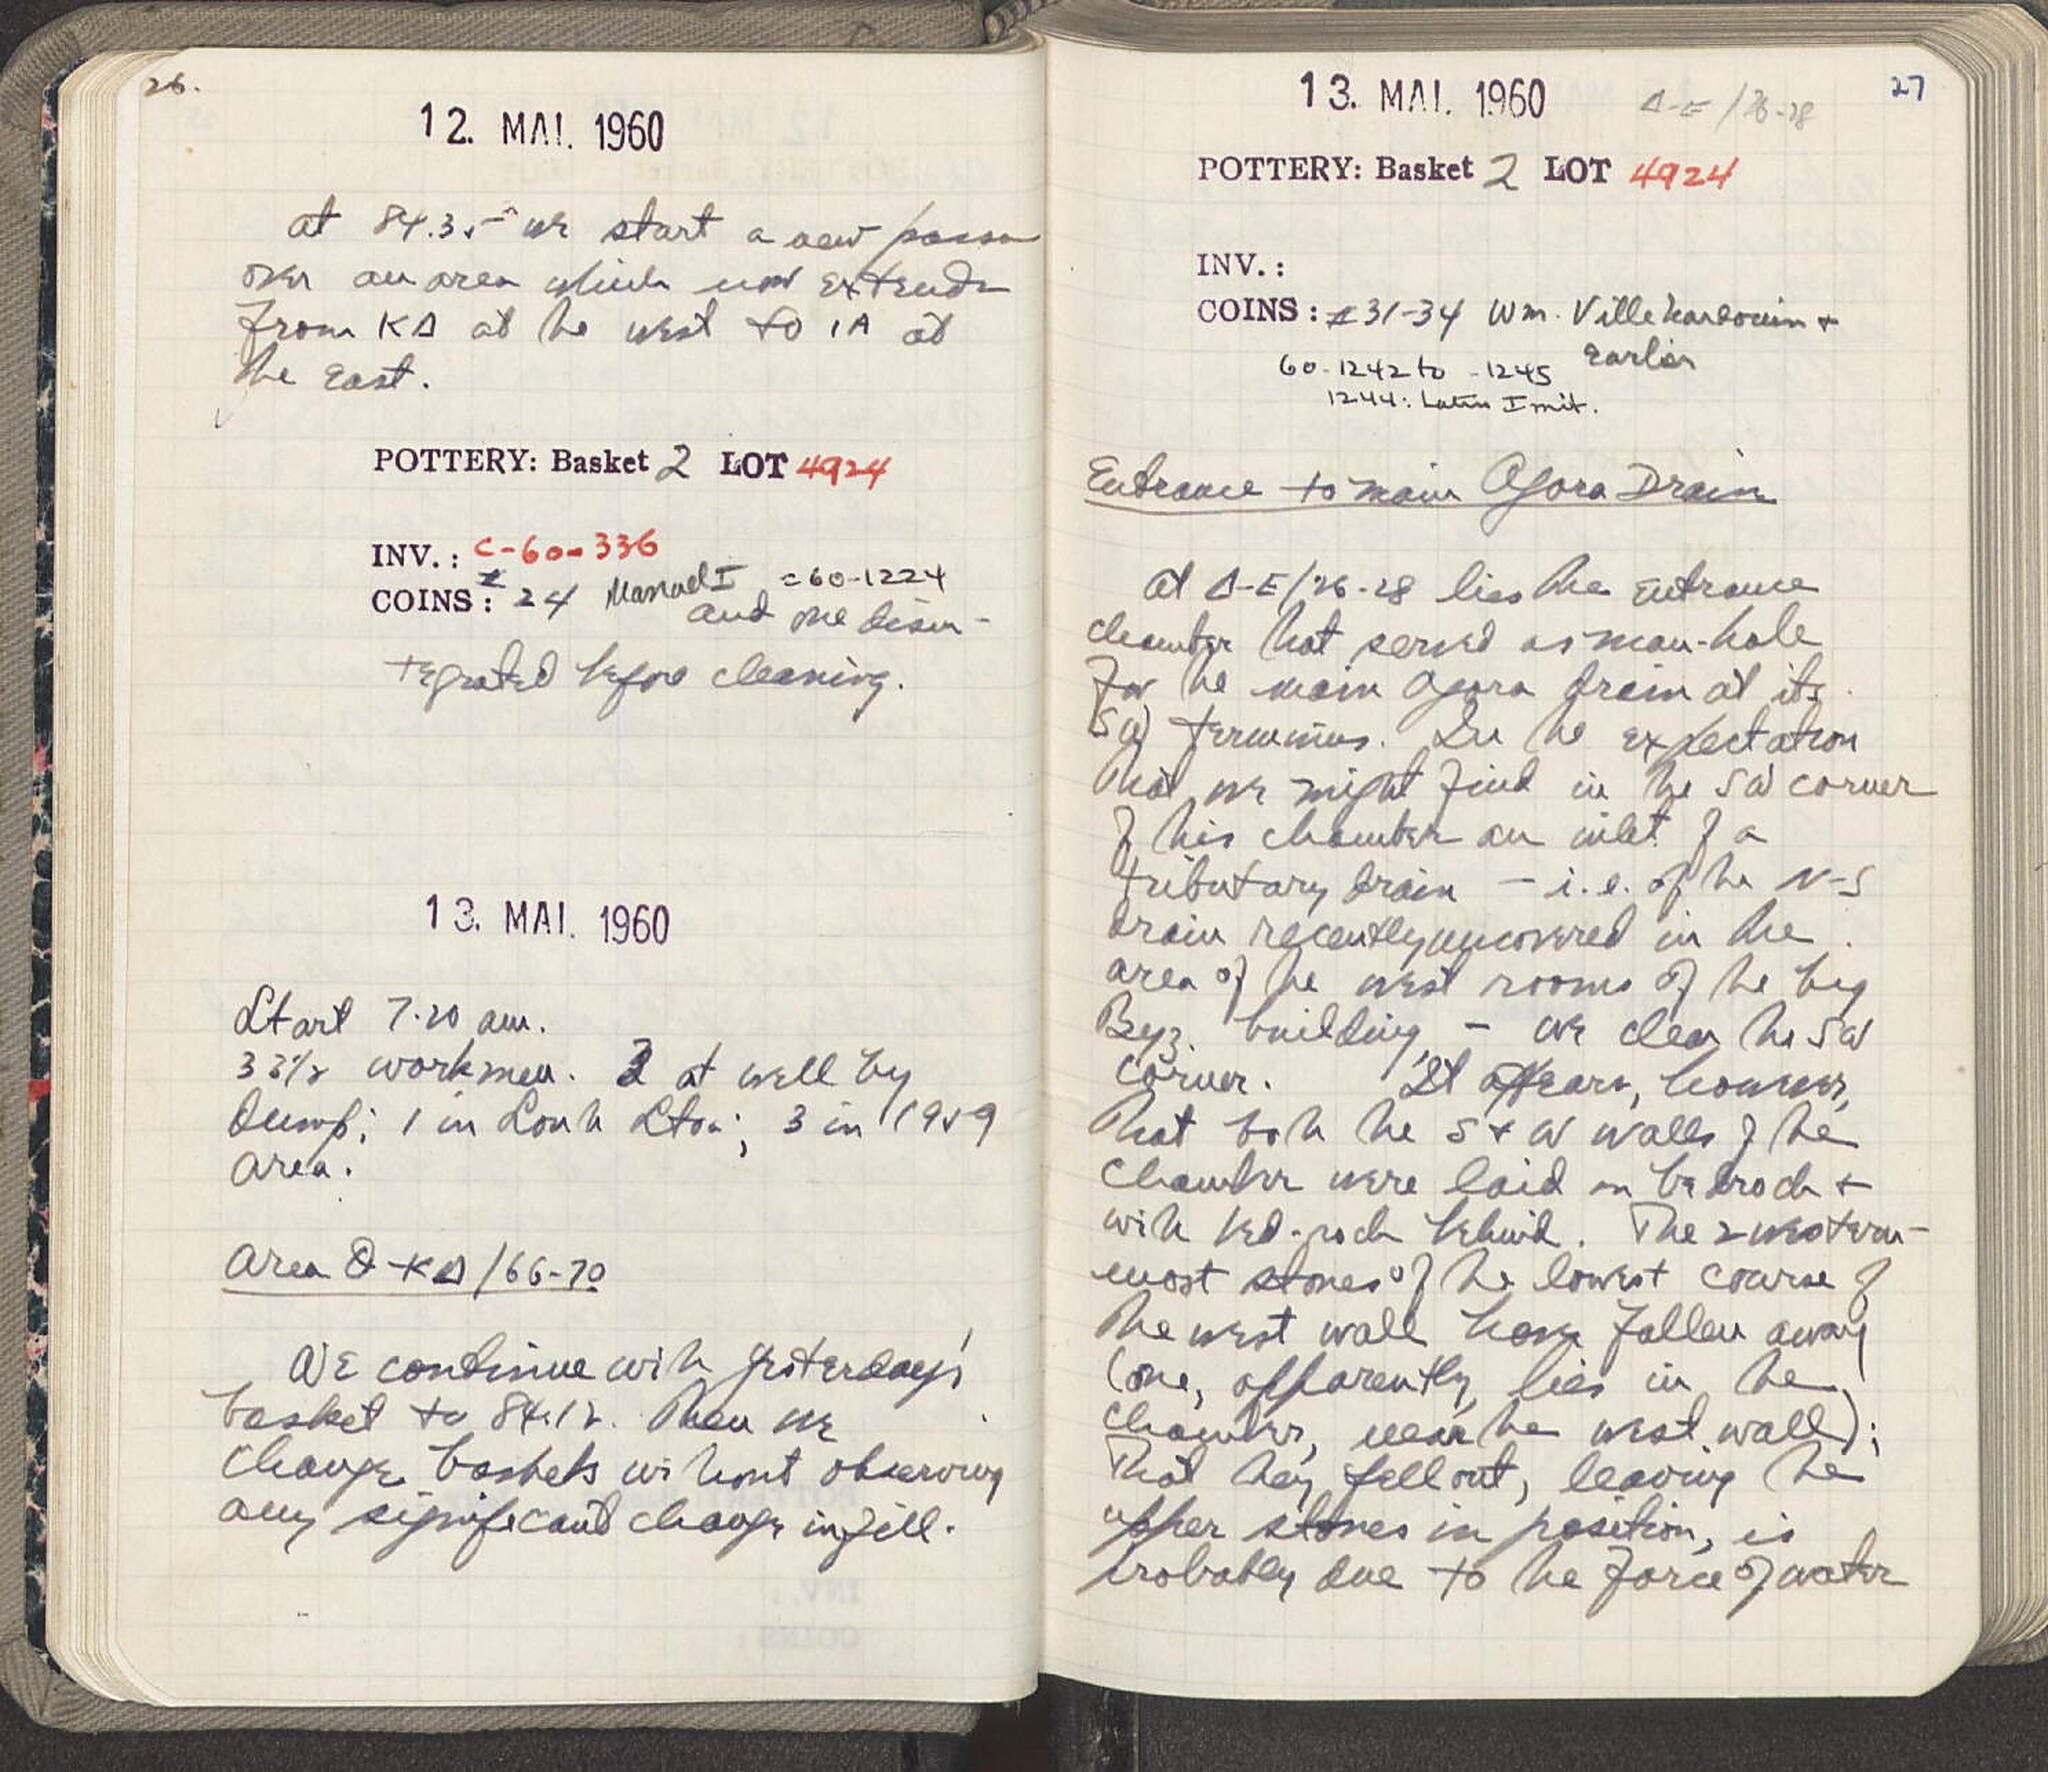 26.
12. MAI. 1960
at 84.35 we start a new
over an area which now extends
from ΚΔ at the west to ΙΑ at
the East.
POTTERY: Basket 2 LOT 4924
INV.: C-60-336
COINS: # 24 Manuel I = 60-1224
and one disin-
tegrated before cleaning.
13. MAI. 1960
Start 7.20 am.
33½ workmen. 2 at well by
dump; 1 in South Stoa; 3 in 1959
area.
Area Θ-ΚΔ/66-70
We continue with yesterday's
basket to 84.12. Then we
change baskets without observing
any significant change in fill.
13. MAI. 1960 Δ-Ε/26-28 27
POTTERY: Basket 2 LOT 4924
INV.:
COINS: #31-34 Wm. Villehardouin +
Earlier
60-1242 to -1245
1244: Latin Imit.
Entrance to main Agora Drain
At Δ-Ε/26-28 lies the entrance
chamber that served as man-hole
for the main Agora drain at its
SW terminus. In the expectation
that we might find in the SW corner
of this chamber an inlet of a
tributary drain – i.e. of the N-S
drain recently uncovered in the
area of the west rooms of the big
Byz. building, – we clear the SW
corner. It appears, however,
that both the S + W walls of the
chamber were laid on bedrock +
with bed-rock behind. The 2 western-
most stones of the lowest course of
the west wall have fallen away
(one, apparently, lies in the
chamber, near the west wall);
That they fell out, leaving the
upper stones in position, is
probably due to the force of water